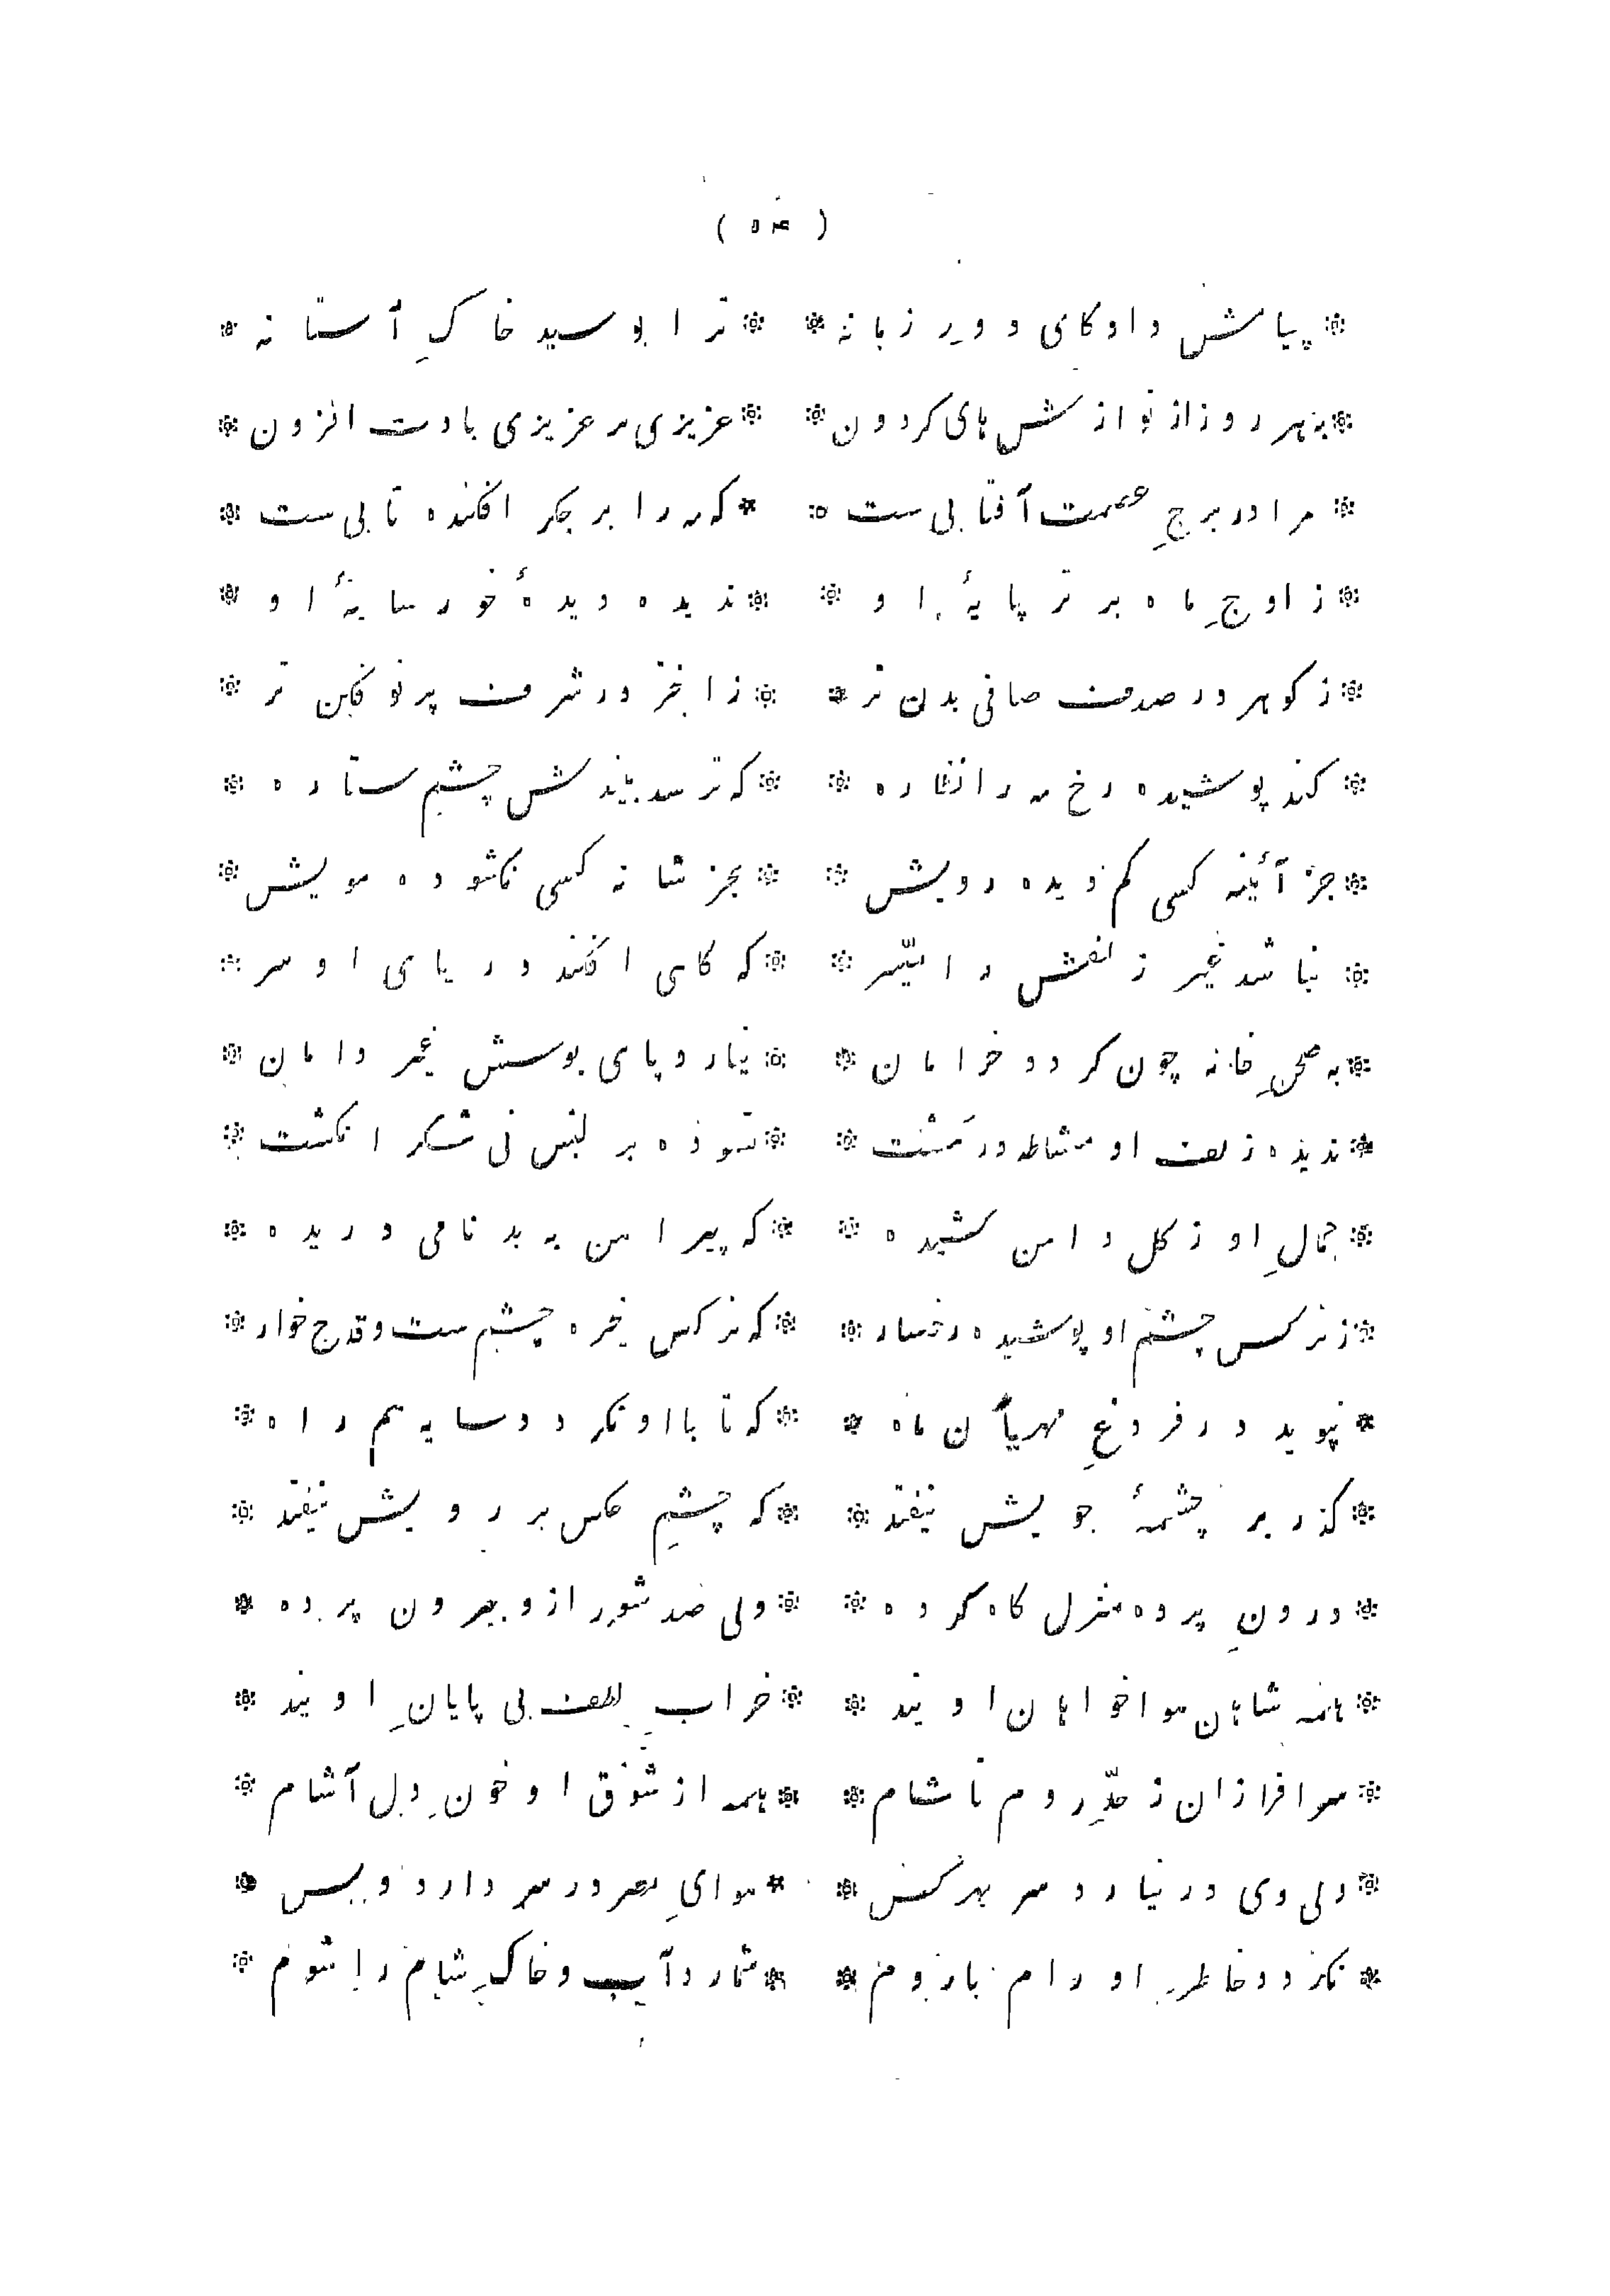 ( ۵۴ )
* پیامش داد کای دور زمانه * ترا بوسید خاکِ آستانه *
* بهر روز از نوازش های کردون * عزیزی بر عزیزی بادت افزون *
* مرا در برجِ عصمت آفتابی ست * که مه را بر جکر افکنده تابی ست *
* ز اوجِ ماه برتر پایهٔ او * ندیده دیدهٔ خور سایهٔ او *
* ز کوهر در صدف صافی بدن تر * ز اختر در شرف پرتو فکن تر *
* کند پوشیده رخ مه را نظاره * که ترسد بیندش چشم ستاره *
* جز آئینه کسی کم دیده رویش * بجز شانه کسی نکشوده مویش *
* نباشد غیر زلفش را میّسر * که کاهی افکند در پای او سر *
* به صحنِ خانه چون کردد خرامان * نیارد پای بوسش غیر دامان *
* ندیده زلف او مشاطه در مَشت * نسوده بر لبش نی شکر انکشت *
* جمالِ او ز کل دامن کشیده * که پیراهن به بد نامی دریده *
* ز نرکس چشم او پوشیده رخسار * که نرکس خیره چشم ست و قدح خوار *
* نپوید در فروغِ مهر یا آن ماه * که تا با او نکردد سایه هم راه *
* کذر بر چشمهٔ جویش نیفتد * که چشمِ عکس بر رویش نیفتد *
* درونِ پرده منزل کاه کرده * ولی صد شور ازو بیرون پرده *
* همه شاهان هواخواهان اویند * خرابِ لطف بی پایانِ اویند *
* سرافرازان ز حدّ روم تا شام * همه از شوق او خونِ دل آشام *
* ولی وی در نیارد سر بهر کس * هوای مصر در سر دارد و بس *
* نکردد خاطر او رام با روم * شمارد آب و خاکِ شام را شوم *